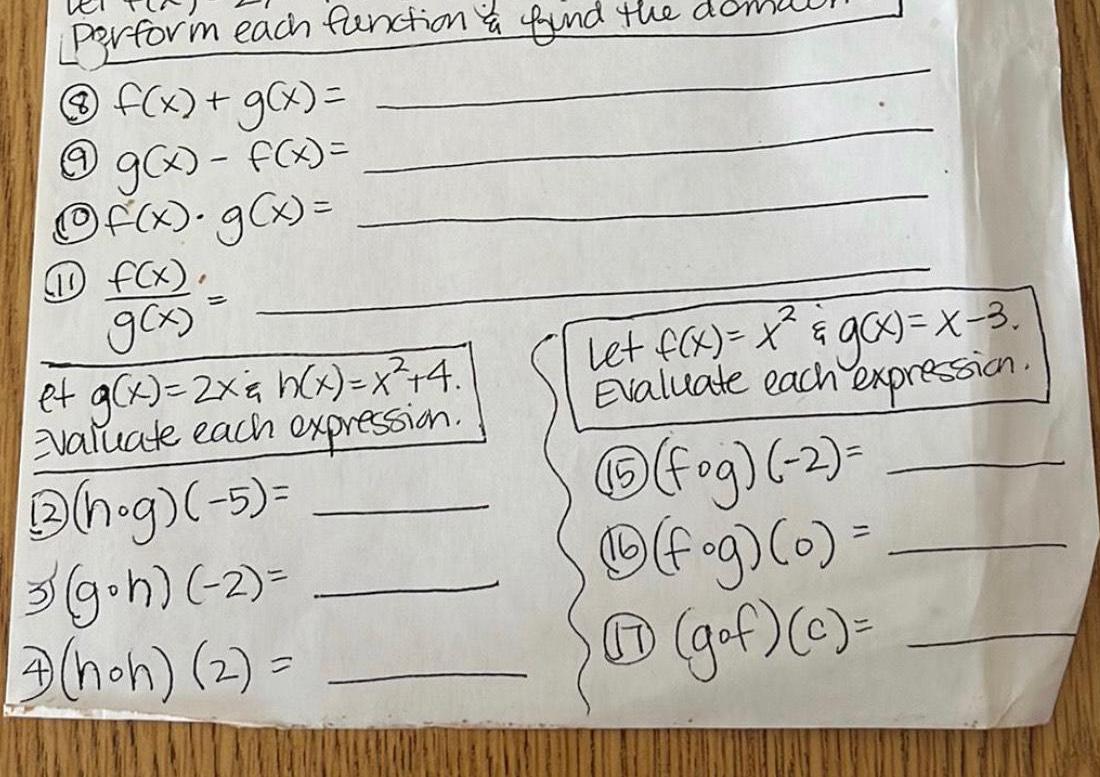 Perform each function & find the domain
⑧ f(x) + g(x) =
⑨ g(x) - f(x) =
⑩ f(x) · g(x) =
⑪ f(x)/g(x) =
et g(x) = 2x & h(x) = x²+4.
Evaluate each expression.
⑫ (h∘g)(-5) =
3 (g∘h)(-2) =
4 (h∘h)(2) =
Let f(x) = x² & g(x) = x-3.
Evaluate each expression.
⑮ (f∘g)(-2) =
⑯ (f∘g)(0) =
⑰ (g∘f)(c) =